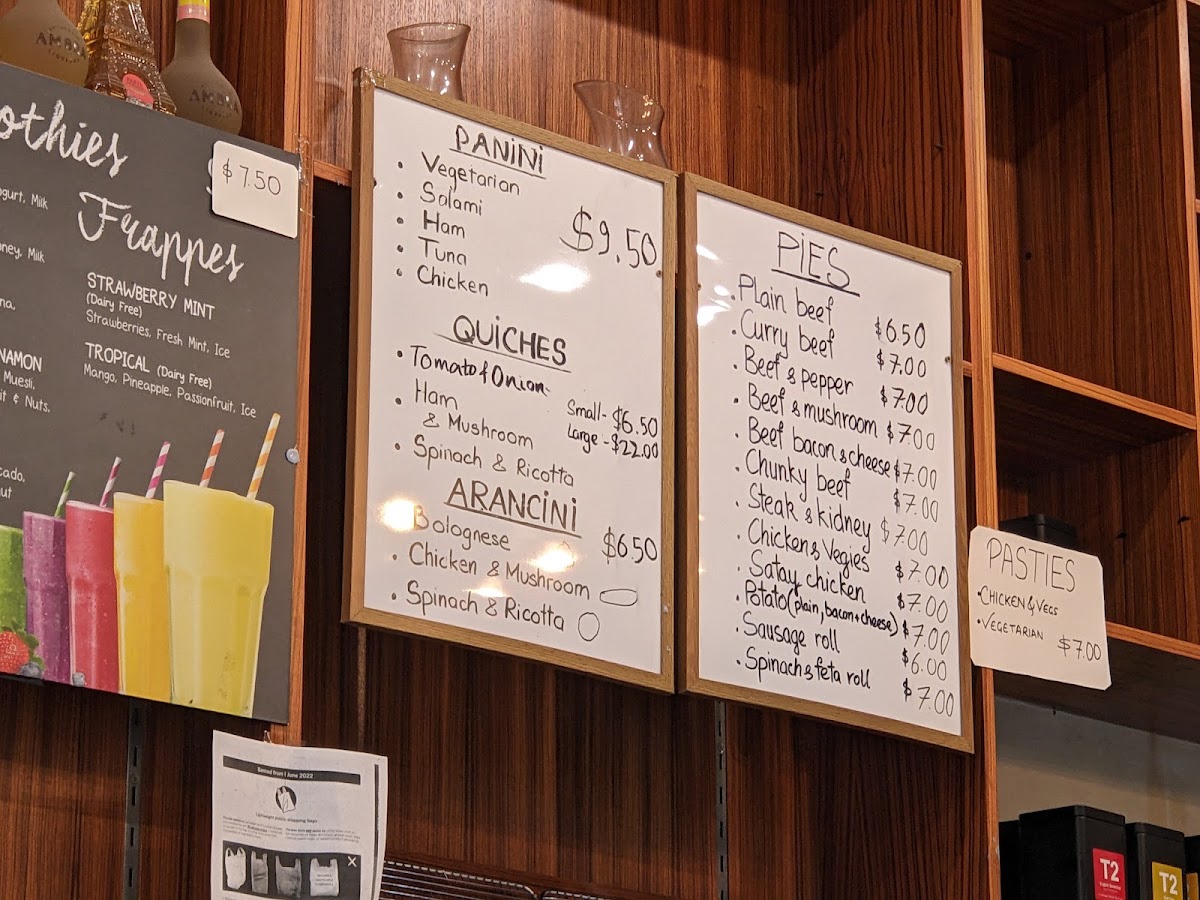 AMB
AMB
othies
$7.50
ogurt, Milk
Frappes
oney, Milk
STRAWBERRY MINT
(Dairy Free)
Strawberries, Fresh Mint, Ice
na,
TROPICAL (Dairy Free)
Mango, Pineapple, Passionfruit, Ice
NAMON
Muesli,
it & Nuts,
cado,
ut
PANINI
• Vegetarian
• Salami
• Ham
• Tuna
• Chicken
$9.50
QUICHES
• Tomato & Onion
• Ham
& Mushroom
• Spinach & Ricotta
Small - $6.50
Large - $22.00
ARANCINI
Bolognese
• Chicken & Mushroom
• Spinach & Ricotta
$6.50
PIES
• Plain beef $6.50
• Curry beef $7.00
• Beef & pepper $7.00
• Beef & mushroom $7.00
• Beef bacon & cheese $7.00
• Chunky beef $7.00
• Steak & kidney $7.00
• Chicken & Vegies $7.00
• Satay chicken $7.00
• Potato (plain, bacon + cheese) $7.00
• Sausage roll $6.00
• Spinach & feta roll $7.00
PASTIES
• CHICKEN & VEGS
• VEGETARIAN $7.00
Banned from 1 June 2022
Lightweight plastic shopping bags
T2
T2